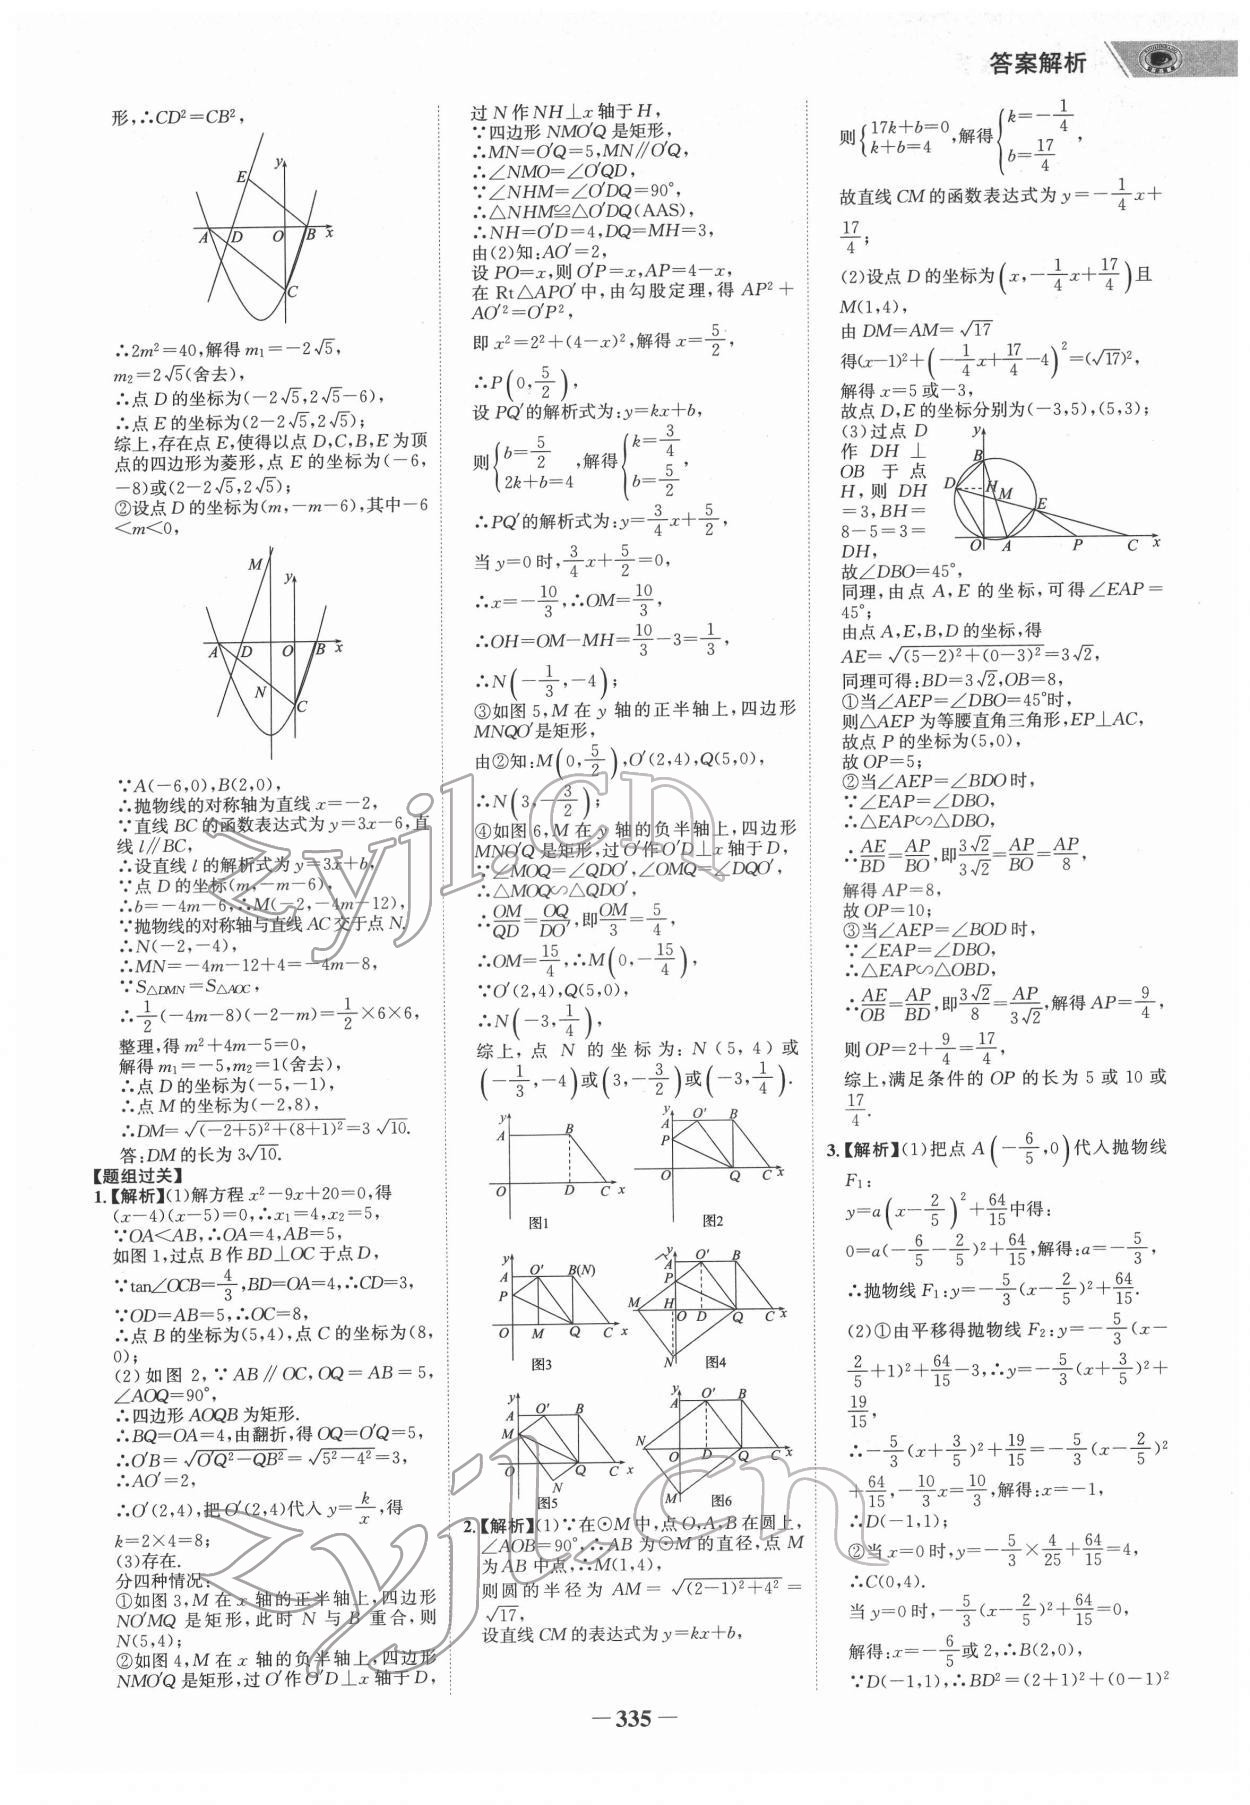 答案解析
形,∴CD²=CB²,
y
E
A D O B x
C
∴2m²=40,解得 m₁=-2√5,
m₂=2√5(舍去),
∴点 D 的坐标为(-2√5,2√5-6),
∴点 E 的坐标为(2-2√5,2√5);
综上,存在点 E,使得以点 D,C,B,E 为顶
点的四边形为菱形,点 E 的坐标为(-6,
-8)或(2-2√5,2√5);
②设点 D 的坐标为(m,-m-6),其中-6
<m<0,
M
y
A D O B x
N
C
∵A(-6,0),B(2,0),
∴抛物线的对称轴为直线 x=-2,
∵直线 BC 的函数表达式为 y=3x-6,直
线 l∥BC,
∴设直线 l 的解析式为 y=3x+b,
∵点 D 的坐标(m,-m-6),
∴b=-4m-6,∴M(-2,-4m-12),
∵抛物线的对称轴与直线 AC 交于点 N.
∴N(-2,-4),
∴MN=-4m-12+4=-4m-8,
∵S△DMN=S△AOC,
∴1/2(-4m-8)(-2-m)=1/2×6×6,
整理,得 m²+4m-5=0,
解得 m₁=-5,m₂=1(舍去),
∴点 D 的坐标为(-5,-1),
∴点 M 的坐标为(-2,8),
∴DM=√((-2+5)²+(8+1)²)=3√10.
答:DM 的长为 3√10.
【题组过关】
1.【解析】(1)解方程 x²-9x+20=0,得
(x-4)(x-5)=0,∴x₁=4,x₂=5,
∵OA<AB,∴OA=4,AB=5,
如图 1,过点 B 作 BD⊥OC 于点 D,
∵tan∠OCB=4/3,BD=OA=4,∴CD=3,
∵OD=AB=5,∴OC=8,
∴点 B 的坐标为(5,4),点 C 的坐标为(8,
0);
(2)如图 2,∵AB∥OC,OQ=AB=5,
∠AOQ=90°,
∴四边形 AOQB 为矩形.
∴BQ=OA=4,由翻折,得 OQ=O′Q=5,
∴O′B=√(O′Q²-QB²)=√(5²-4²)=3,
∴AO′=2,
∴O′(2,4),把 O′(2,4)代入 y=k/x,得
k=2×4=8;
(3)存在.
分四种情况:
①如图 3,M 在 x 轴的正半轴上,四边形
NO′MQ 是矩形,此时 N 与 B 重合,则
N(5,4);
②如图 4,M 在 x 轴的负半轴上,四边形
NMO′Q 是矩形,过 O′作 O′D⊥x 轴于 D,
过 N 作 NH⊥x 轴于 H,
∵四边形 NMO′Q 是矩形,
∴MN=O′Q=5,MN∥O′Q,
∴∠NMO=∠O′QD,
∵∠NHM=∠O′DQ=90°,
∴△NHM≌△O′DQ(AAS),
∴NH=O′D=4,DQ=MH=3,
由(2)知:AO′=2,
设 PO=x,则 O′P=x,AP=4-x,
在 Rt△APO′中,由勾股定理,得 AP²+
AO′²=O′P²,
即 x²=2²+(4-x)²,解得 x=5/2,
∴P(0,5/2),
设 PQ′的解析式为:y=kx+b,
则{b=5/2 2k+b=4,解得{k=3/4 b=5/2,
∴PQ′的解析式为:y=3/4x+5/2,
当 y=0 时,3/4x+5/2=0,
∴x=-10/3,∴OM=10/3,
∴OH=OM-MH=10/3-3=1/3,
∴N(-1/3,-4);
③如图 5,M 在 y 轴的正半轴上,四边形
MNQO′是矩形,
由②知:M(0,5/2),O′(2,4),Q(5,0),
∴N(3,-3/2);
④如图 6,M 在 y 轴的负半轴上,四边形
MNO′Q 是矩形,过 O′作 O′D⊥x 轴于 D,
∵∠MOQ=∠QDO′,∠OMQ=∠DQO′,
∴△MOQ∽△QDO′,
∴OM/QD=OQ/DO′,即OM/3=5/4,
∴OM=15/4,∴M(0,-15/4),
∵O′(2,4),Q(5,0),
∴N(-3,1/4),
综上,点 N 的坐标为:N(5,4)或
(-1/3,-4)或(3,-3/2)或(-3,1/4).
y A B O D C x 图1
y A O′ B P O Q C x 图2
y A O′ B(N) P O M Q C x 图3
y A O′ B P M H O D Q C x N 图4
y A O′ B M O Q C x N 图5
y A O′ B N O D Q C x M 图6
2.【解析】(1)∵在⊙M 中,点 O,A,B 在圆上,
∠AOB=90°,∴AB 为⊙M 的直径,点 M
为 AB 中点,∴M(1,4),
则圆的半径为 AM=√((2-1)²+4²)=
√17,
设直线 CM 的表达式为 y=kx+b,
则{17k+b=0 k+b=4,解得{k=-1/4 b=17/4,
故直线 CM 的函数表达式为 y=-1/4x+
17/4;
(2)设点 D 的坐标为(x,-1/4x+17/4)且
M(1,4),
由 DM=AM=√17
得(x-1)²+(-1/4x+17/4-4)²=(√17)²,
解得 x=5 或-3,
故点 D,E 的坐标分别为(-3,5),(5,3);
(3)过点 D
作 DH⊥
OB 于点
H,则 DH
=3,BH=
8-5=3=
DH,
y B D H M E O A P C x
故∠DBO=45°,
同理,由点 A,E 的坐标,可得∠EAP=
45°;
由点 A,E,B,D 的坐标,得
AE=√((5-2)²+(0-3)²)=3√2,
同理可得:BD=3√2,OB=8,
①当∠AEP=∠DBO=45°时,
则△AEP 为等腰直角三角形,EP⊥AC,
故点 P 的坐标为(5,0),
故 OP=5;
②当∠AEP=∠BDO 时,
∵∠EAP=∠DBO,
∴△EAP∽△DBO,
∴AE/BD=AP/BO,即3√2/3√2=AP/BO=AP/8,
解得 AP=8,
故 OP=10;
③当∠AEP=∠BOD 时,
∵∠EAP=∠DBO,
∴△EAP∽△OBD,
∴AE/OB=AP/BD,即3√2/8=AP/3√2,解得 AP=9/4,
则 OP=2+9/4=17/4,
综上,满足条件的 OP 的长为 5 或 10 或
17/4.
3.【解析】(1)把点 A(-6/5,0)代入抛物线
F₁:
y=a(x-2/5)²+64/15中得:
0=a(-6/5-2/5)²+64/15,解得:a=-5/3,
∴抛物线 F₁:y=-5/3(x-2/5)²+64/15.
(2)①由平移得抛物线 F₂:y=-5/3(x-
2/5+1)²+64/15-3,∴y=-5/3(x+3/5)²+
19/15,
∴-5/3(x+3/5)²+19/15=-5/3(x-2/5)²
+64/15,-10/3x=10/3,解得:x=-1,
∴D(-1,1);
②当 x=0 时,y=-5/3×4/25+64/15=4,
∴C(0,4).
当 y=0 时,-5/3(x-2/5)²+64/15=0,
解得:x=-6/5或 2,∴B(2,0),
∵D(-1,1),∴BD²=(2+1)²+(0-1)²
— 335 —
zyjl.cn
zyjl.cn